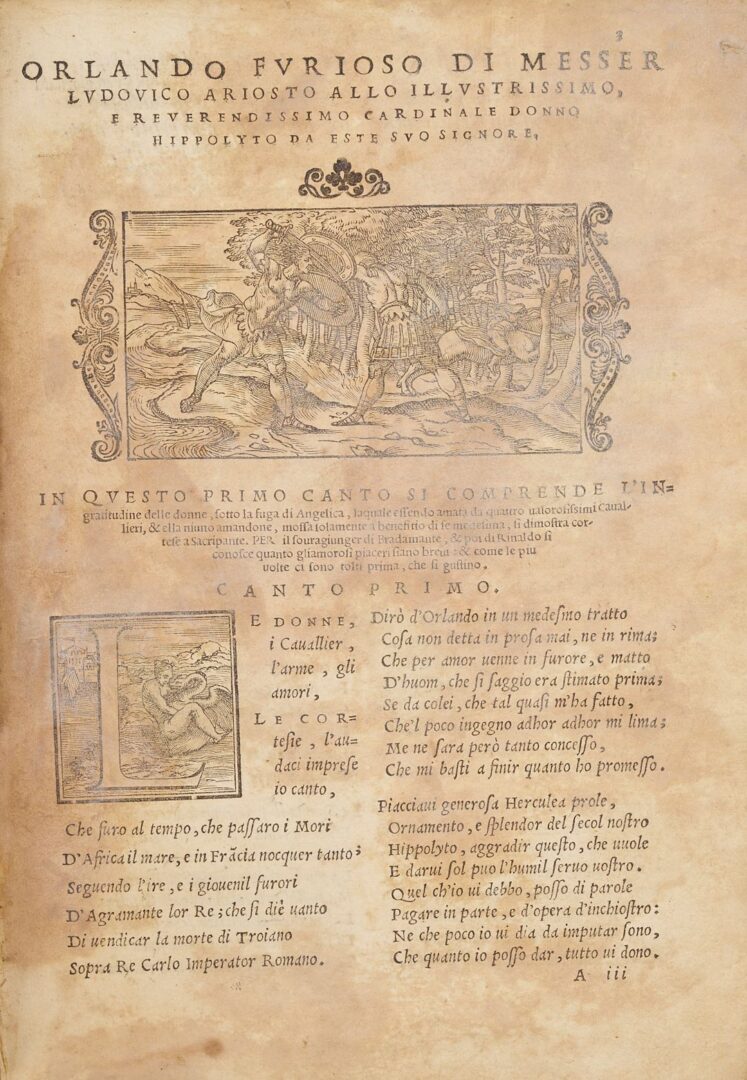 3
ORLANDO FVRIOSO DI MESSER
LVDOVICO ARIOSTO ALLO ILLVSTRISSIMO,
E REVERENDISSIMO CARDINALE DONNO
HIPPOLYTO DA ESTE SVO SIGNORE,
IN QVESTO PRIMO CANTO SI COMPRENDE L'IN=
gratitudine delle donne, sotto la fuga di Angelica, laquale essendo amata da quatro ualorosissimi Caual-
lieri, & ella niuno amandone, mossa solamente a beneficio di se medesima, si dimostra cor-
tese a Sacripante. PER il souragiunger di Bradamante, & poi di Rinaldo si
conosce quanto gliamorosi piaceri siano breui: & come le piu
uolte ci sono tolti prima, che si gustino.
CANTO PRIMO.
L
E DONNE,
i Cauallier,
l'arme, gli
amori,
LE COR=
tesie, l'au=
daci imprese
io canto,
Che furo al tempo, che passaro i Mori
D'Africa il mare, e in Frãcia nocquer tanto;
Seguendo l'ire, e i giouenil furori
D'Agramante lor Re; che si diè uanto
Di uendicar la morte di Troiano
Sopra Re Carlo Imperator Romano.
Dirò d'Orlando in un medesmo tratto
Cosa non detta in prosa mai, ne in rima;
Che per amor uenne in furore, e matto
D'huom, che si saggio era stimato prima;
Se da colei, che tal quasi m'ha fatto,
Che'l poco ingegno adhor adhor mi lima;
Me ne sara però tanto concesso,
Che mi basti a finir quanto ho promesso.
Piacciaui generosa Herculea prole,
Ornamento, e splendor del secol nostro
Hippolyto, aggradir questo, che uuole
E darui sol puo l'humil seruo uostro.
Quel ch'io ui debbo, posso di parole
Pagare in parte, e d'opera d'inchiostro:
Ne che poco io ui dia da imputar sono,
Che quanto io posso dar, tutto ui dono.
A iii